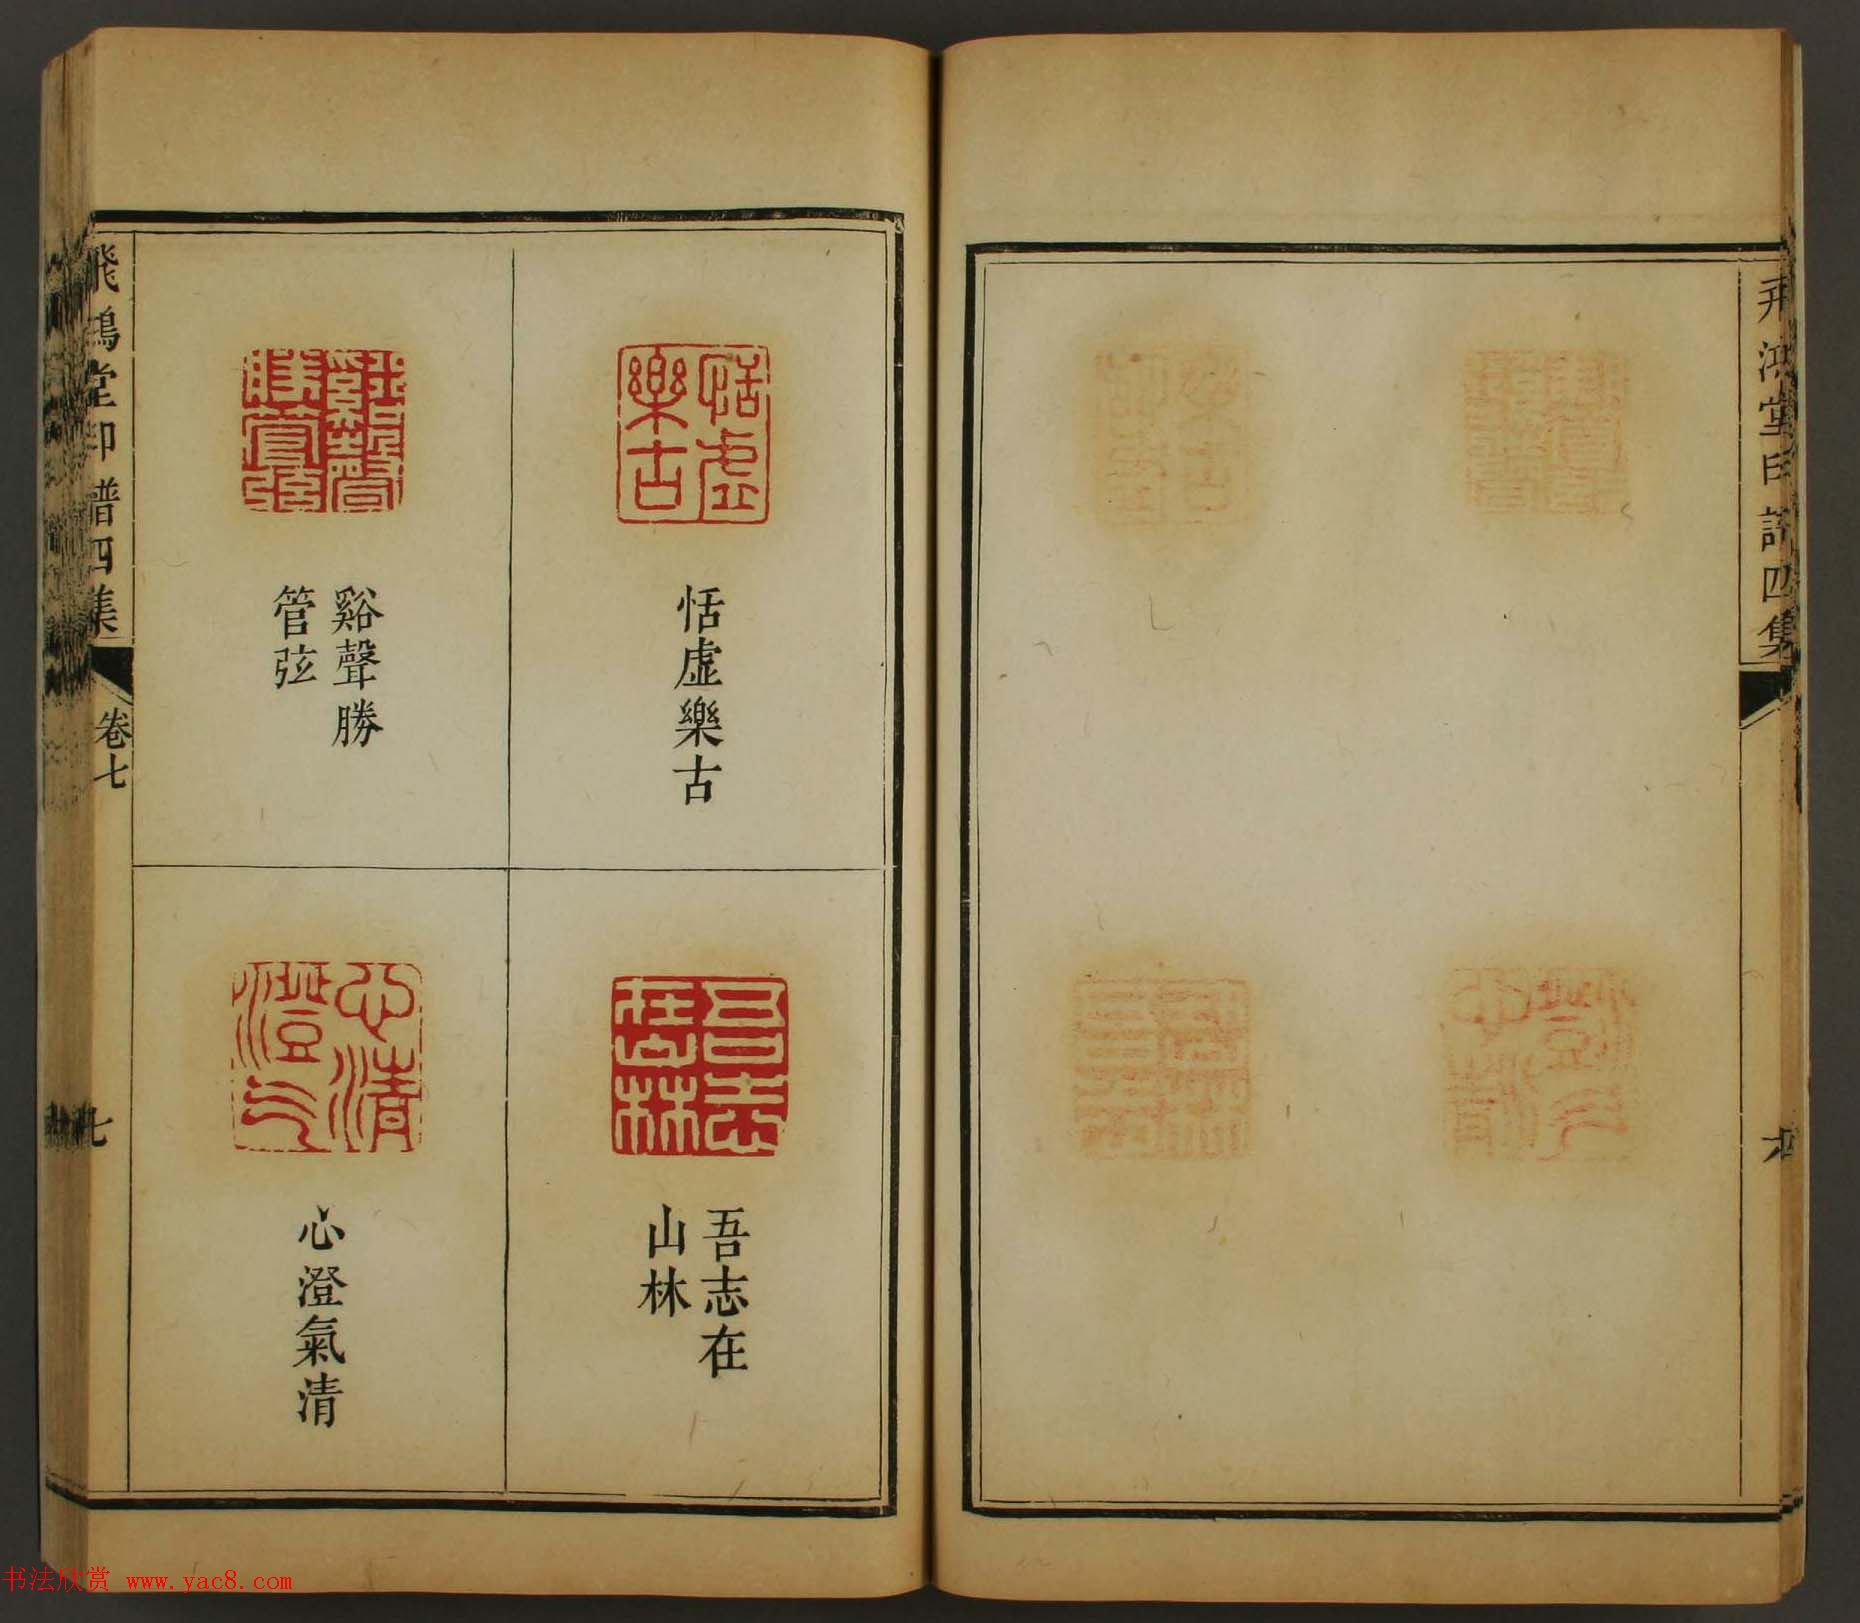 飛鴻堂印譜四集
恬虛樂古
恬虛樂古
谿聲勝
管弦
谿聲勝管弦
吾志在山林
吾志在
山林
心清澄气
心澄氣清
飛鴻堂印譜四集
卷七
七
书法欣赏 www.yac8.com